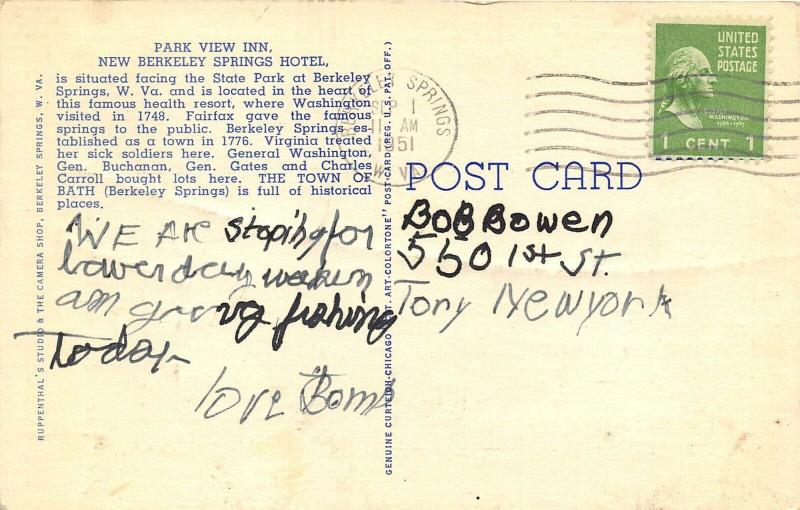 PARK VIEW INN,
NEW BERKELEY SPRINGS HOTEL,
is situated facing the State Park at Berkeley
Springs, W. Va. and is located in the heart of
this famous health resort, where Washington
visited in 1748. Fairfax gave the famous
springs to the public. Berkeley Springs es-
tablished as a town in 1776. Virginia treated
her sick soldiers here. General Washington,
Gen. Buchanan, Gen. Gates and Charles
Carroll bought lots here. THE TOWN OF
BATH (Berkeley Springs) is full of historical
places.
WE ARE stoping for
am
fishing
Today
love
RUPPENTHAL'S STUDIO & THE CAMERA SHOP, BERKELEY SPRINGS, W. VA.
GENUINE CURTEICH-CHICAGO "C.T. ART-COLORTONE" POST CARD (REG. U.S. PAT. OFF.)
BERKELEY SPRINGS
SEP 1
11 AM
1951
W. VA.
UNITED
STATES
POSTAGE
WASHINGTON
1789-1797
1 CENT 1
POST CARD
BOB Bowen
550 1st St.
Tory Newyork